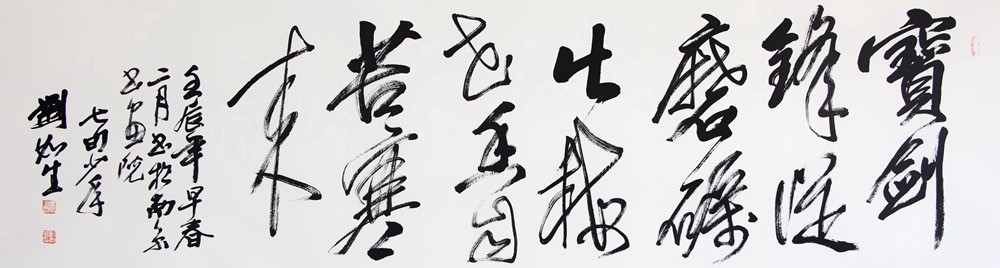 寶劍
鋒從
磨礪
出梅
花香自
苦寒
來
壬辰年早春
二月书於南京
书画院
七旬少年
劉灿生